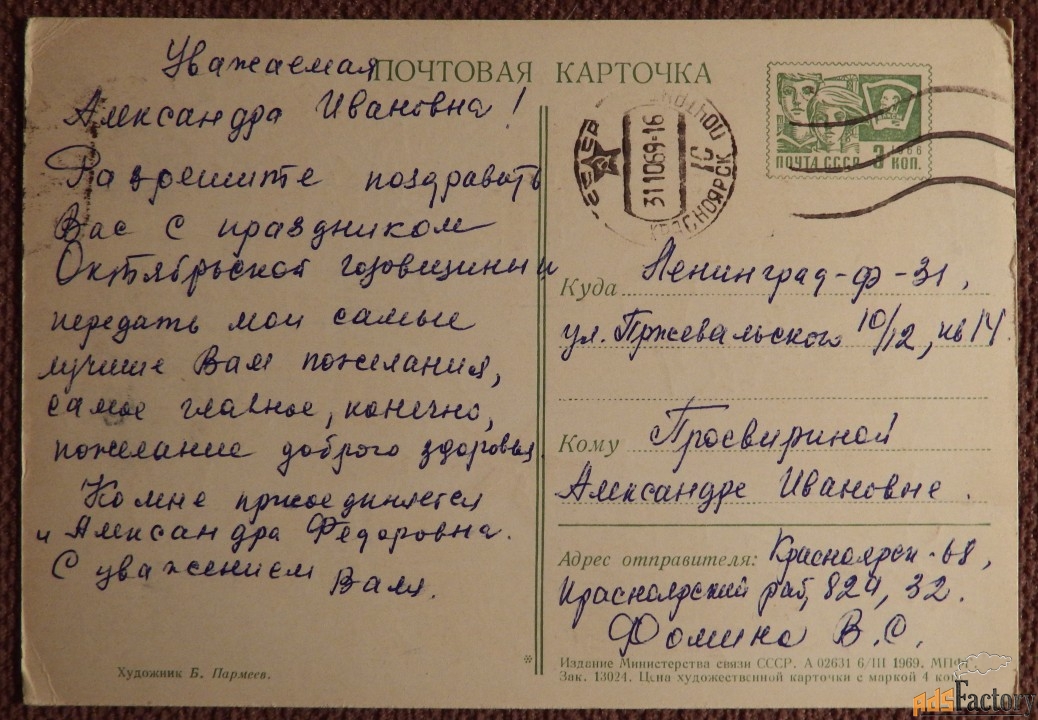 ПОЧТОВАЯ КАРТОЧКА
Уважаемая
Александра Ивановна!
Разрешите поздравить
Вас с праздником
Октябрьской годовщины и
передать мои самые
лучшие Вам пожелания,
самое главное, конечно,
пожелание доброго здоровья.
Ко мне присоединяется
и Александра Федоровна.
С уважением Валя.
Художник Б. Пармеев.
СССР
31.10.69-16
КРАСНОЯРСК
ПОЧТА СССР 3 КОП.
1966
Куда Ленинград-ф-31,
ул. Пржевальского 10/12, кв 14.
Кому Просвириной
Александре Ивановне.
Адрес отправителя: Красноярск-68,
Красноярский раб, 824, 32.
Фомина В.С.
Издание Министерства связи СССР. А 02631 6/III 1969. МПФГ
Зак. 13024. Цена художественной карточки с маркой 4 коп.
AdsFactory